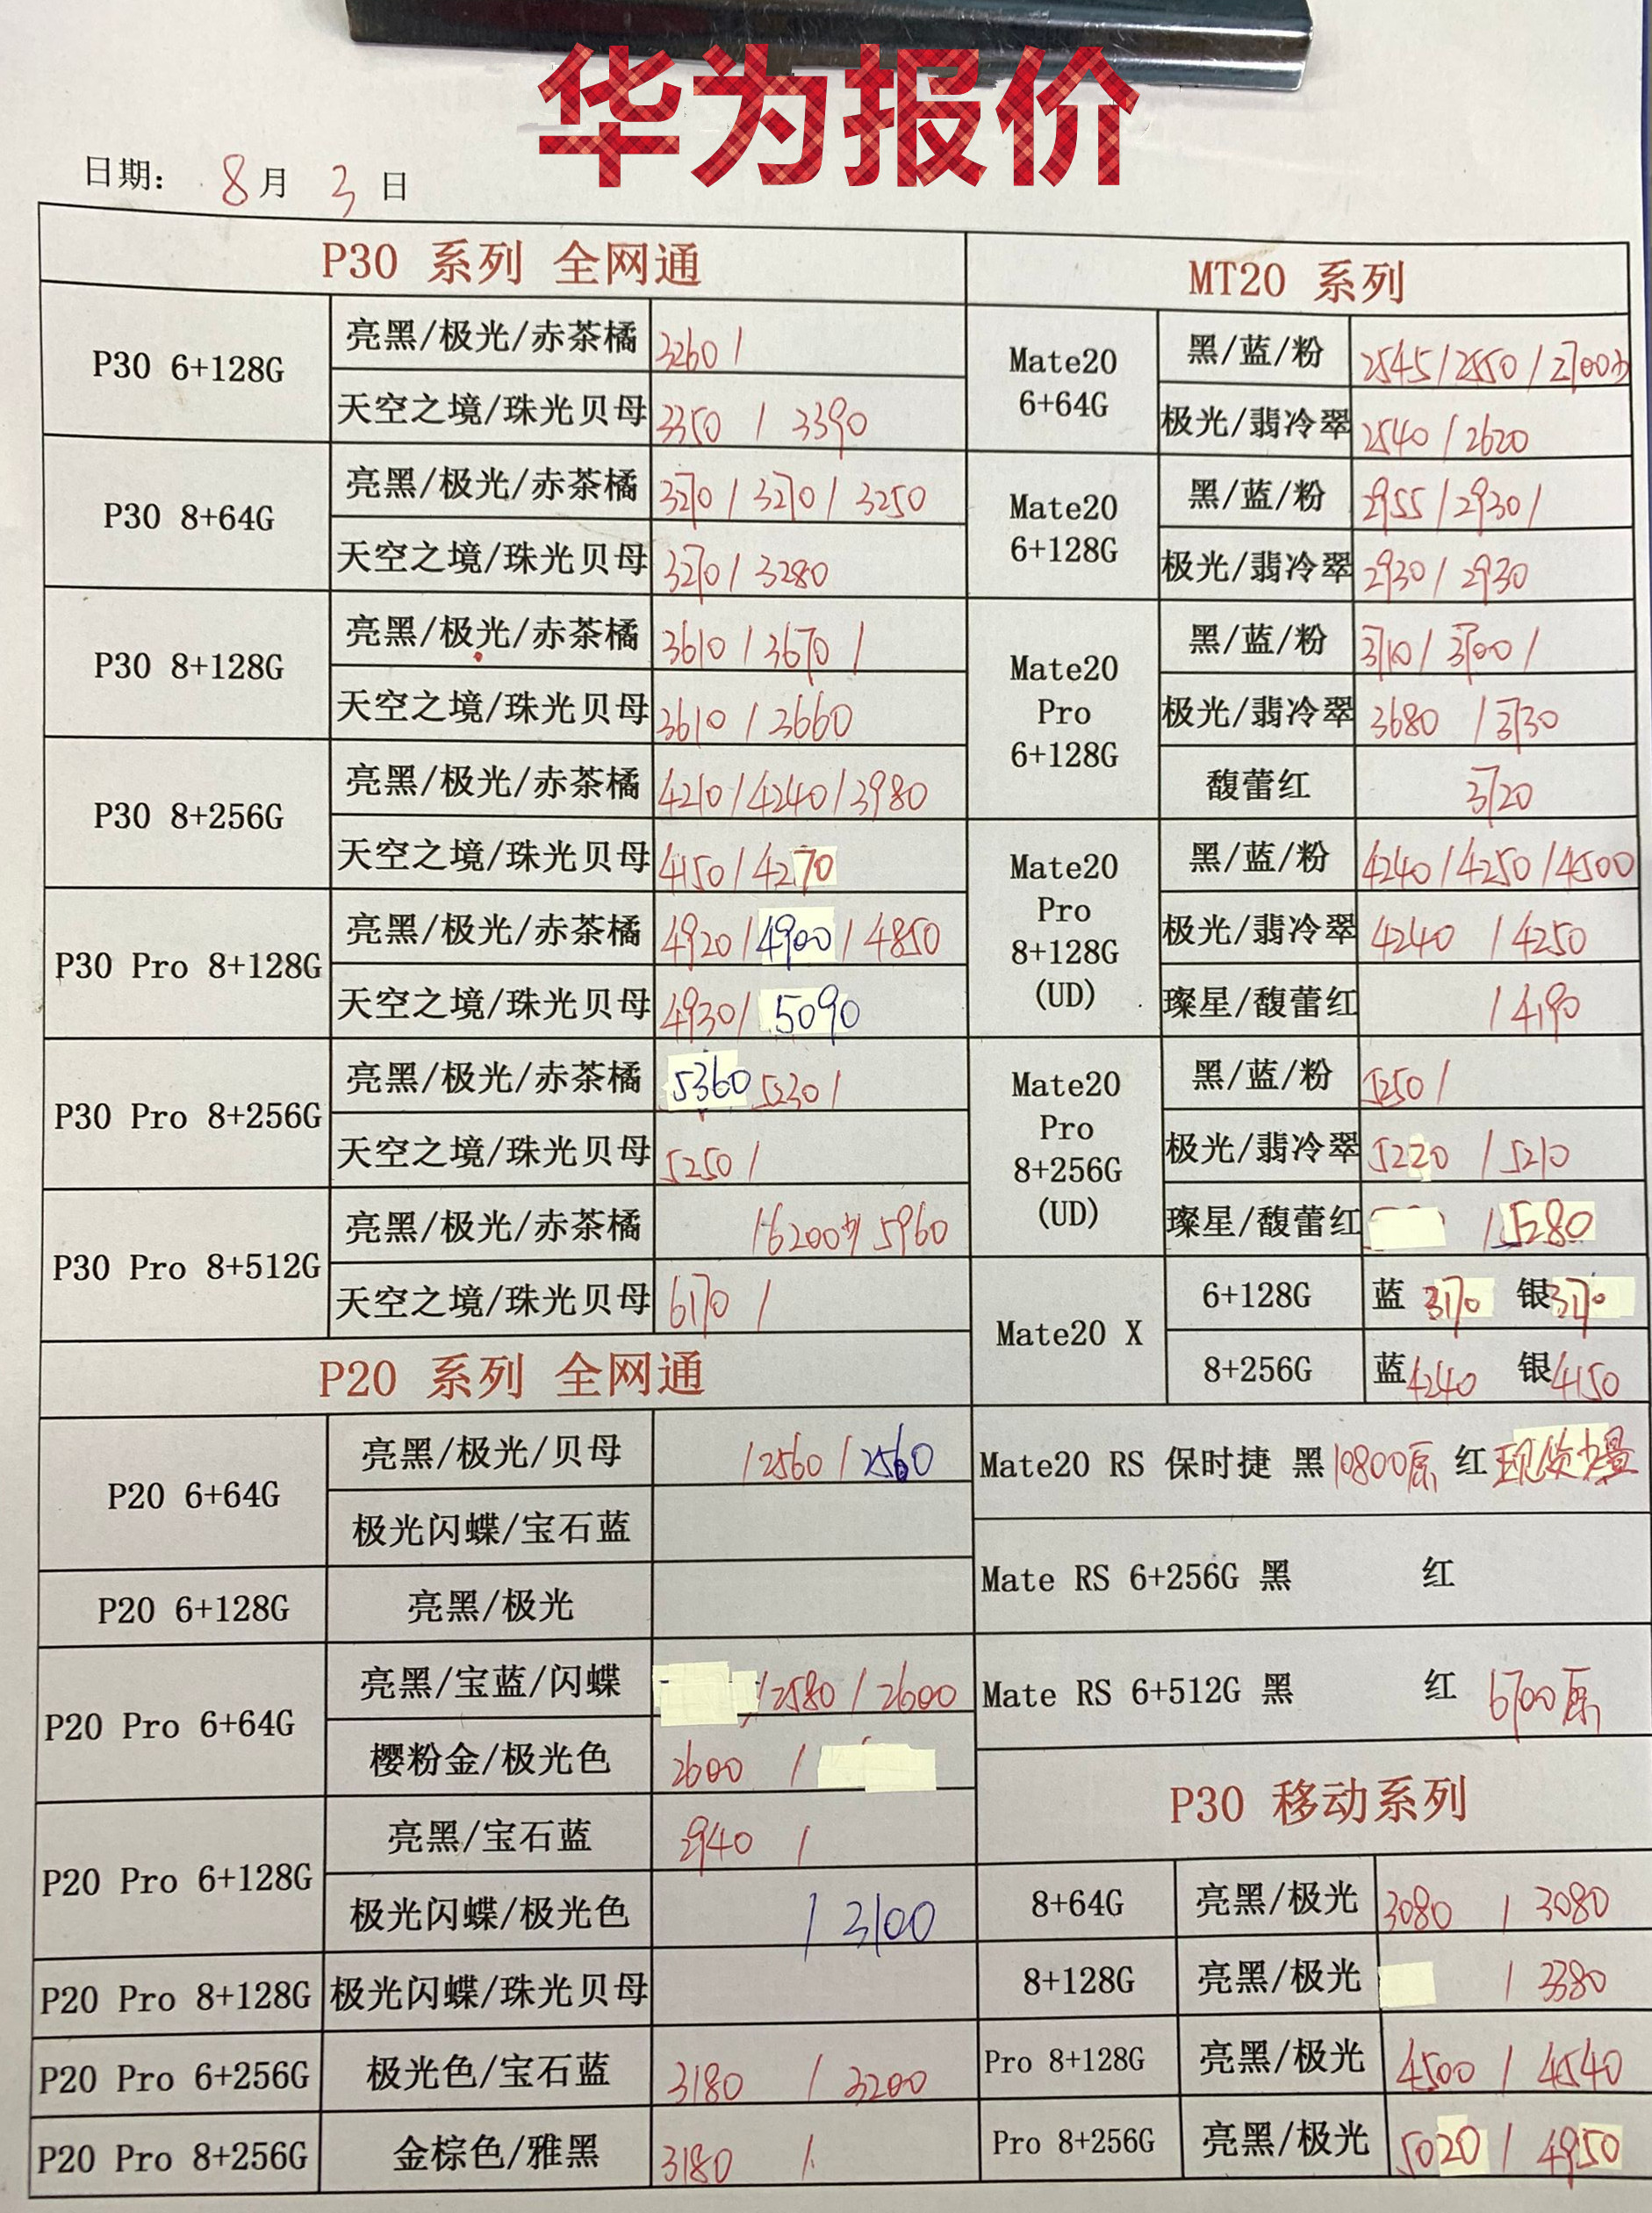 华为报价
日期: 8月 3日
P30 系列 全网通
P30 6+128G
亮黑/极光/赤茶橘 3260 /
天空之境/珠光贝母 3350 / 3390
P30 8+64G
亮黑/极光/赤茶橘 3270 / 3270 / 3250
天空之境/珠光贝母 3270 / 3280
P30 8+128G
亮黑/极光/赤茶橘 3610 / 3670 /
天空之境/珠光贝母 3610 / 3660
P30 8+256G
亮黑/极光/赤茶橘 4210/4240/3980
天空之境/珠光贝母 4150/4270
P30 Pro 8+128G
亮黑/极光/赤茶橘 4920/4900/4850
天空之境/珠光贝母 4930/5090
P30 Pro 8+256G
亮黑/极光/赤茶橘 5360 5230/
天空之境/珠光贝母 5250 /
P30 Pro 8+512G
亮黑/极光/赤茶橘 /6200少/5960
天空之境/珠光贝母 6170 /
P20 系列 全网通
P20 6+64G
亮黑/极光/贝母 /2560/2560
极光闪蝶/宝石蓝
P20 6+128G 亮黑/极光
P20 Pro 6+64G
亮黑/宝蓝/闪蝶 /2580/2600
樱粉金/极光色 2600 /
P20 Pro 6+128G
亮黑/宝石蓝 2940 /
极光闪蝶/极光色 / 3100
P20 Pro 8+128G 极光闪蝶/珠光贝母
P20 Pro 6+256G 极光色/宝石蓝 3180 / 3200
P20 Pro 8+256G 金棕色/雅黑 3180 /
MT20 系列
Mate20
6+64G
黑/蓝/粉 2545/2550/2700少
极光/翡冷翠 2540/2620
Mate20
6+128G
黑/蓝/粉 2955/2930/
极光/翡冷翠 2930/2930
Mate20
Pro
6+128G
黑/蓝/粉 3710/3700/
极光/翡冷翠 3680 /3730
馥蕾红 3720
Mate20
Pro
8+128G
(UD)
黑/蓝/粉 4240/4250/4500
极光/翡冷翠 4240 /4250
璨星/馥蕾红 /4190
Mate20
Pro
8+256G
(UD)
黑/蓝/粉 5250/
极光/翡冷翠 5220 /5210
璨星/馥蕾红 /5280
Mate20 X
6+128G 蓝 3170 银3170
8+256G 蓝4240 银4150
Mate20 RS 保时捷 黑10800原 红现货少量
Mate RS 6+256G 黑 红
Mate RS 6+512G 黑 红 6700原
P30 移动系列
8+64G 亮黑/极光 3080 / 3080
8+128G 亮黑/极光 / 3380
Pro 8+128G 亮黑/极光 4500 / 4540
Pro 8+256G 亮黑/极光 5020 / 4950